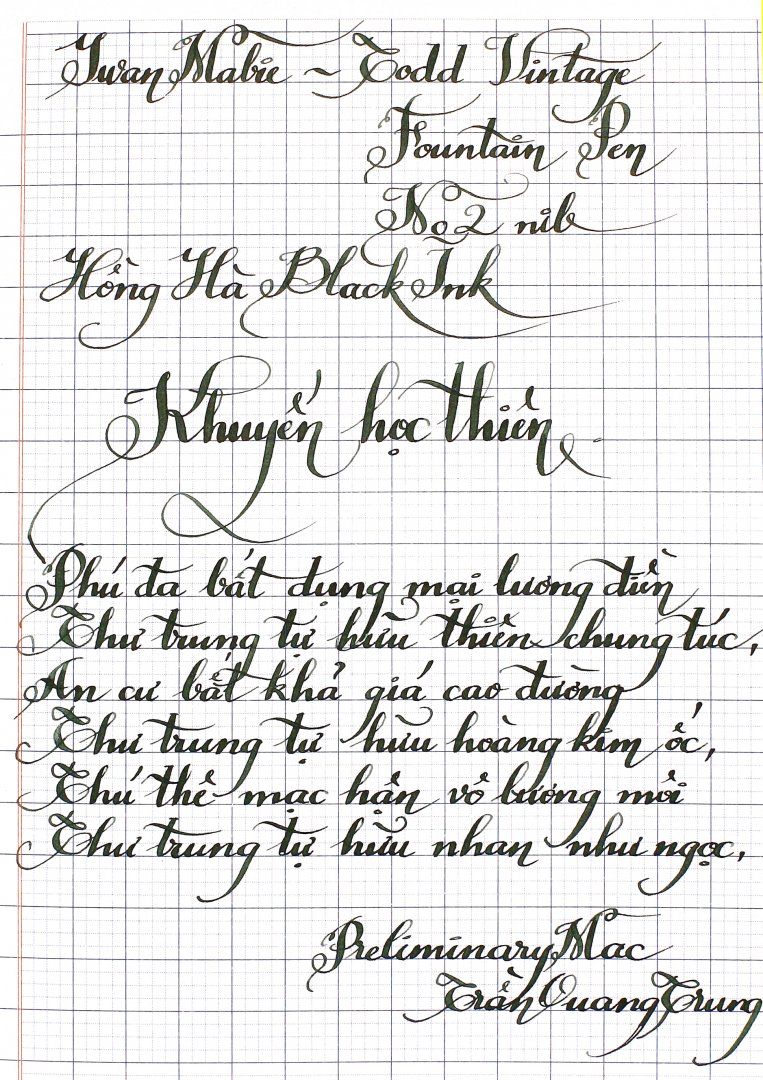 Swan Mabie ~ Todd Vintage
Fountain Pen
No 2 nib
Hồng Hà Black Ink
Khuyến học thiên
Phú da bất dụng mại lương điền
Thư trung tự hữu thiên chung túc,
An cư bất khả giá cao đường
Thư trung tự hữu hoàng kim ốc,
Thú thê mạc hận vô lương môi
Thư trung tự hữu nhan như ngọc,
Preliminary Mac
Trần Quang Trung